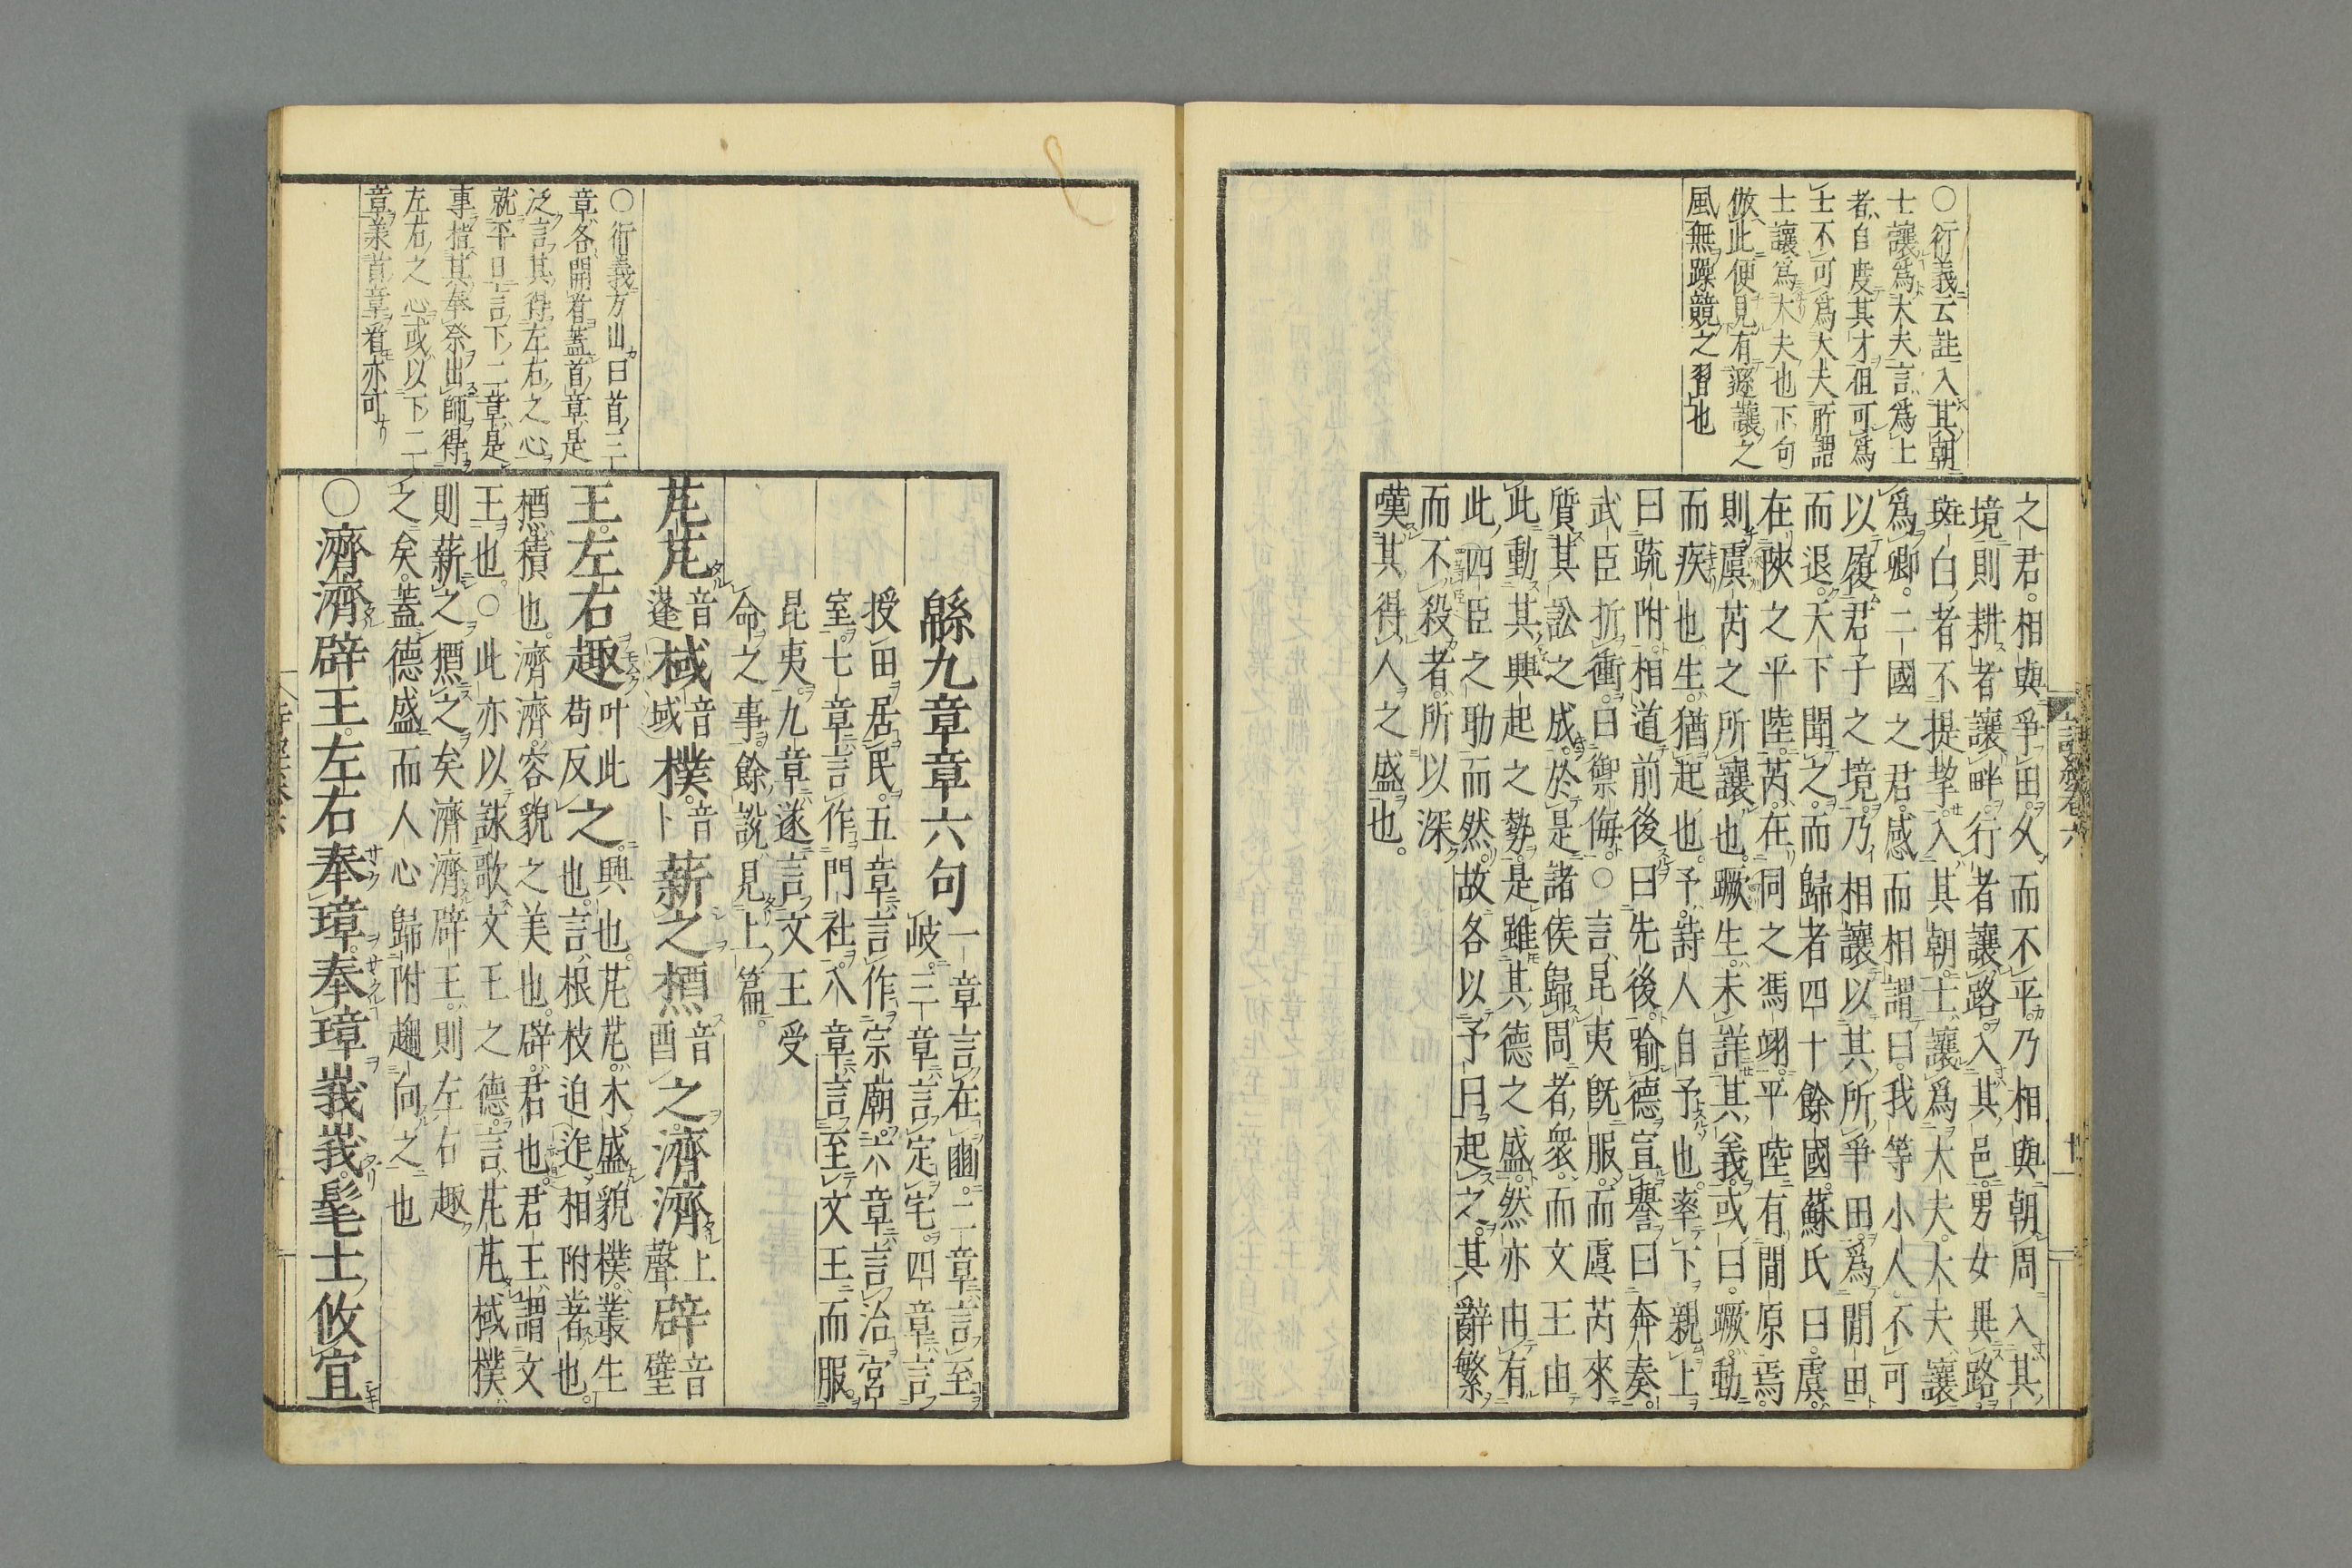 ○衍義云註入其朝
士讓爲大夫言爲上
者自度其才但可爲
士不可爲大夫所謂
士讓爲大夫也下句
倣此便見有遜讓之
風無躁競之習也
之君相與爭田久而不平乃相與朝周入其
境則耕者讓畔行者讓路入其邑男女異路
斑白者不提挈入其朝士讓爲大夫大夫讓
爲卿二國之君感而相謂曰我等小人不可
以履君子之境乃相讓以其所爭田爲閒田
而退天下聞之而歸者四十餘國蘇氏曰虞
在陝之平陸芮在同之馮翊平陸有閒原焉
則虞芮之所讓也蹶生未詳其義或曰蹶動
而疾也生猶起也予詩人自予也率下親上
曰疏附相道前後曰先後喻德宣譽曰奔奏
武臣折衝曰禦侮○言昆夷既服而虞芮來
質其訟之成於是諸侯歸周者衆而文王由
此動其興起之勢是雖其德之盛然亦由有
此四臣之助而然故各以予曰起之其辭繁
而不殺者所以深
嘆其得人之盛也
詩經卷六
十一
緜九章章六句
一章言在豳二章言至
岐三章言定宅四章言
授田居民五章言作宗廟六章言治宮
室七章言作門社八章言至文王而服
昆夷九章遂言文王受
命之事餘說見上篇
芃芃音蓬棫音域樸音卜薪之槱音酉之濟濟上聲辟音璧
王左右趣叶此苟反之興也芃芃木盛貌樸叢生
也言根枝迫迮相附著也
槱積也濟濟容貌之美也辟君也君王謂文
王也○此亦以詠歌文王之德言芃芃棫樸
則薪之槱之矣濟濟辟王則左右趣
之矣蓋德盛而人心歸附趨向之也
○濟濟辟王左右奉璋奉璋峩峩髦士攸宜
○衍義方山曰首二
章各開看蓋首章是
泛言其得左右之心
就平日言下二章是
事指其奉祭出師得
左右之心或以下二
章業首章看亦可